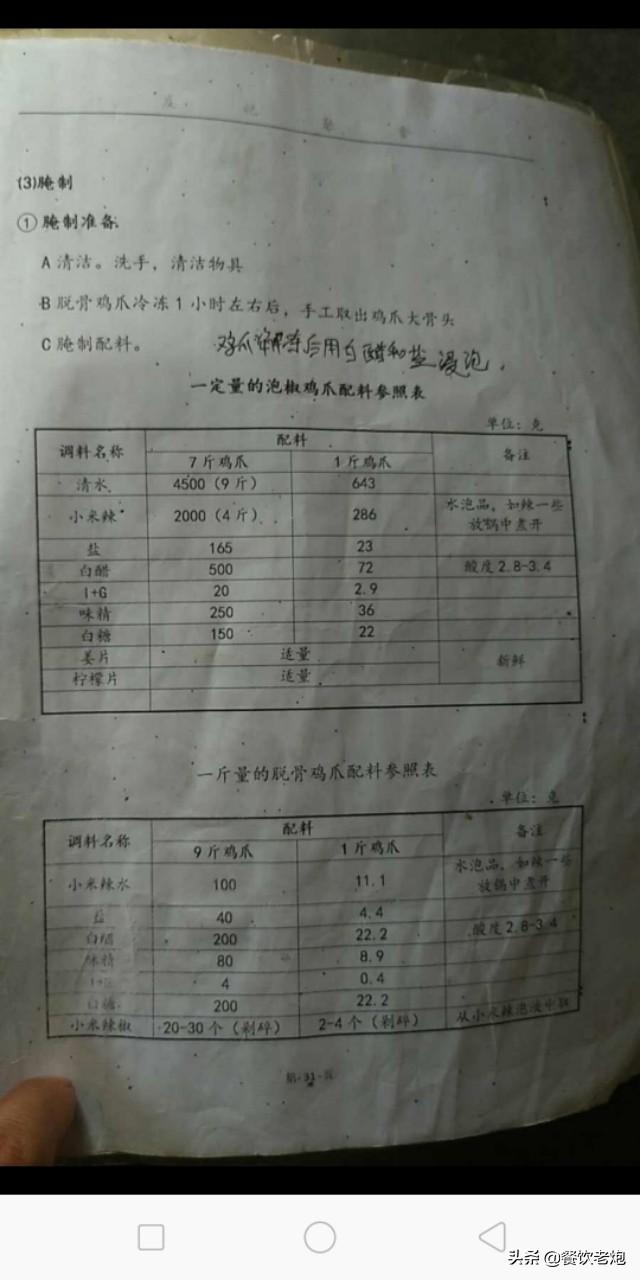 (3)腌制
①腌制准备
A 清洁。洗手，清洁物具
B 脱骨鸡爪冷冻1小时左右后，手工取出鸡爪大骨头
C 腌制配料。
鸡爪解冻后用白醋和盐浸泡。
一定量的泡椒鸡爪配料参照表
单位：克
调料名称 配料 备注
7斤鸡爪 1斤鸡爪
清水 4500（9斤） 643
小米辣 2000（4斤） 286 水泡品，如辣一些放锅中煮开
盐 165 23
白醋 500 72 酸度2.8-3.4
I+G 20 2.9
味精 250 36
白糖 150 22
姜片 适量 新鲜
柠檬片 适量
一斤量的脱骨鸡爪配料参照表
单位：克
调料名称 配料 备注
9斤鸡爪 1斤鸡爪
小米辣水 100 11.1 水泡品，如辣一些放锅中煮开
盐 40 4.4
白醋 200 22.2 酸度2.8-3.4
味精 80 8.9
4 0.4
白糖 200 22.2
小米辣椒 20-30个（剁碎） 2-4个（剁碎） 从小米辣泡液中取
第-31-页
头条 @餐饮老炮